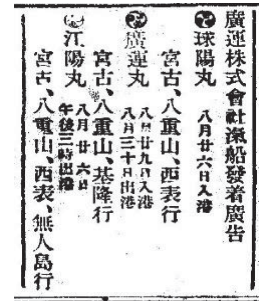 廣運株式會社滊船發着廣告
球陽丸 八月廿六日入港
宮古、八重山、西表行
廣運丸 八月廿九日入港
八月三十日出港
宮古、八重山、基隆行
江陽丸 八月廿六日
午後三時出港
宮古、八重山、西表、無人島行